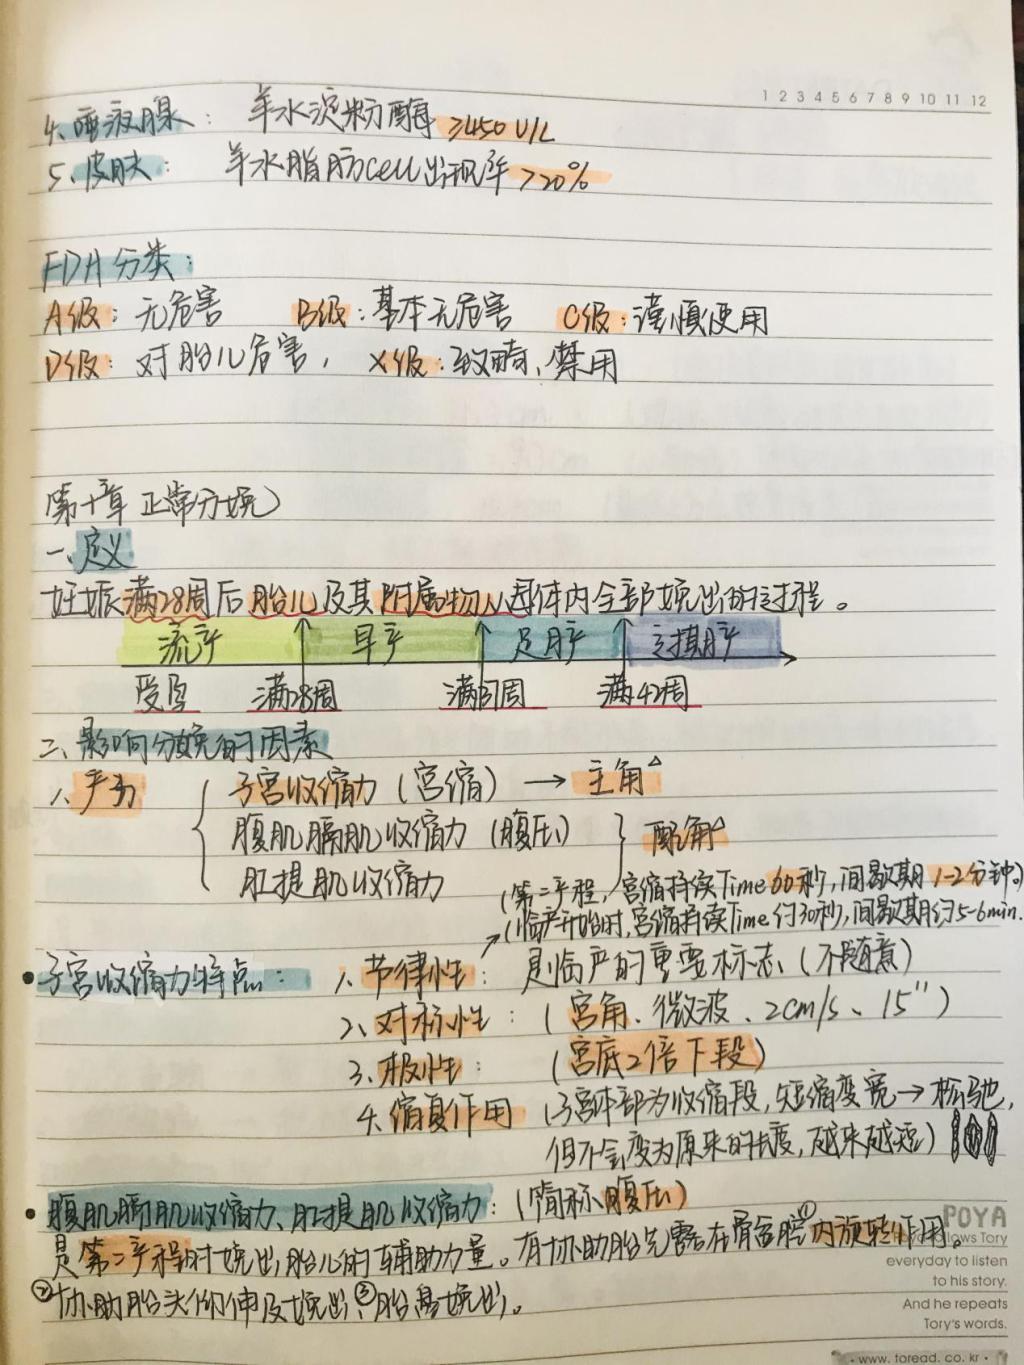 1 2 3 4 5 6 7 8 9 10 11 12
4、唾液腺： 羊水淀粉酶 ≥450 U/L
5、皮肤： 羊水脂肪cell出现率 >20%
FDA 分类：
A级：无危害 B级：基本无危害 C级：谨慎使用
D级：对胎儿危害， X级：致畸、禁用
第十章 正常分娩
一、定义
妊娠满28周后胎儿及其附属物从母体内全部娩出的过程。
流产 早产 足月产 过期产
受孕 满28周 满37周 满42周
二、影响分娩的因素
1、产力 子宫收缩力（宫缩）→ 主角△
腹肌膈肌收缩力（腹压） 配角△
肛提肌收缩力
（第二产程，宫缩持续Time 60秒，间歇期 1-2分钟。）
（临产开始时，宫缩持续Time约30秒，间歇期约5-6min.
• 子宫收缩力特点： 1、节律性：是临产的重要标志（不随意）
2、对称性：（宫角、微波、2cm/s、15"）
3、极性：（宫底2倍下段）
4、缩复作用（子宫体部为收缩段，短缩变宽→松驰，
但不会变为原来的长度，越来越短）
• 腹肌膈肌收缩力、肛提肌收缩力：（简称腹压）
是第二产程时娩出胎儿的辅助力量。有协助胎先露在骨盆腔①内旋转作用。
②协助胎头仰伸及娩出、③胎盘娩出。
POYA
Poya follows Tory
everyday to listen
to his story.
And he repeats
Tory's words.
· www. toread. co. kr ·